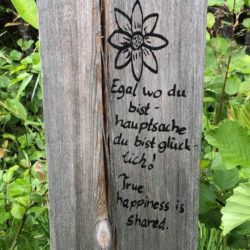 Egal wo du
bist -
hauptsache
du bist glück-
lich!
True
happiness is
shared.